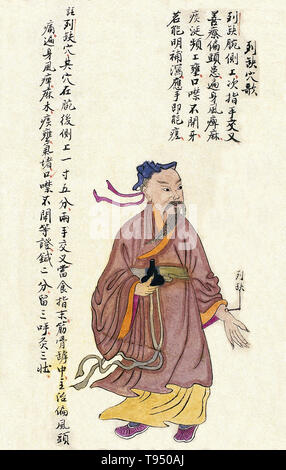 列缺穴歌
列缺腕側上次指手交叉
善療偏頭患遍身風痺麻
痰涎頻上壅口噤不開牙
若能明補瀉應手即能瘥
註列缺穴其穴在腕後側上一寸五分兩手交叉當食指末筋骨罅中主治偏風頭
痛遍身風痺麻木痰壅氣堵口噤不開等證鍼二分留三呼灸三壯
列缺
alamy
Image ID: T950AJ
www.alamy.com